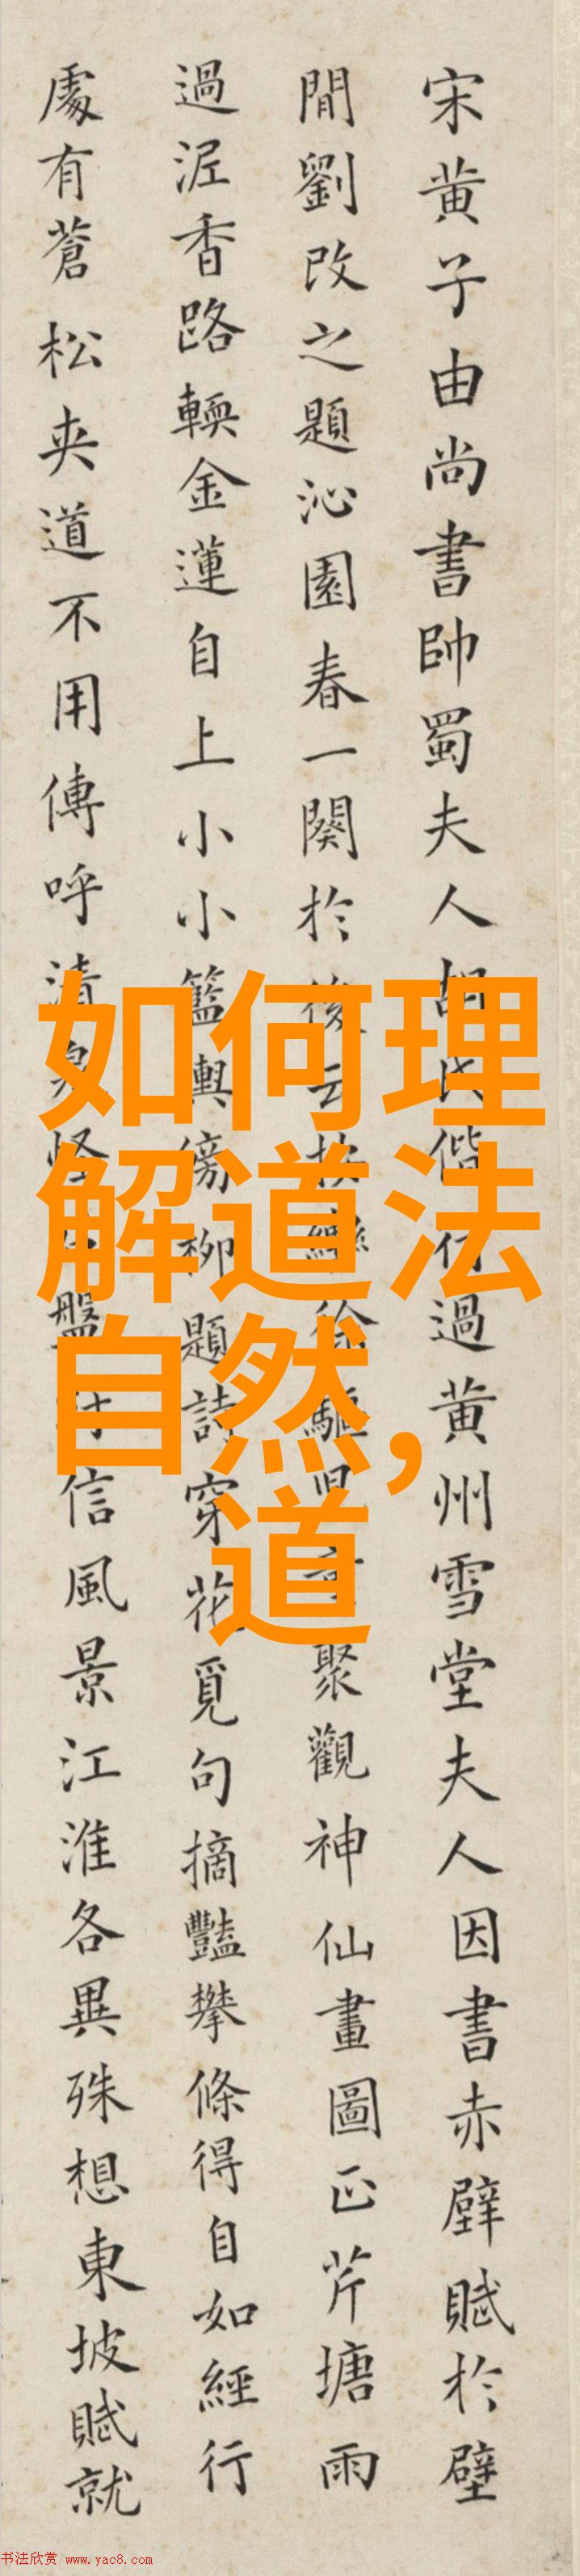 宋黄子由尚書帥蜀夫人胡氏偕行過黄州雪堂夫人因書赤壁賦於壁
間劉改之題沁園春一闋於後云按轡徐驅兒童聚觀神仙畫圖正芹塘雨
過泥香路輭金蓮自上小小籃輿傍柳題詩穿花覓句摘豔攀條得自如經行
處有蒼松夾道不用傳呼清泉怪石盤紆信風景江淮各異殊想東坡賦就
如何理
解道法
自然,
道
书法欣赏 www.yac8.com